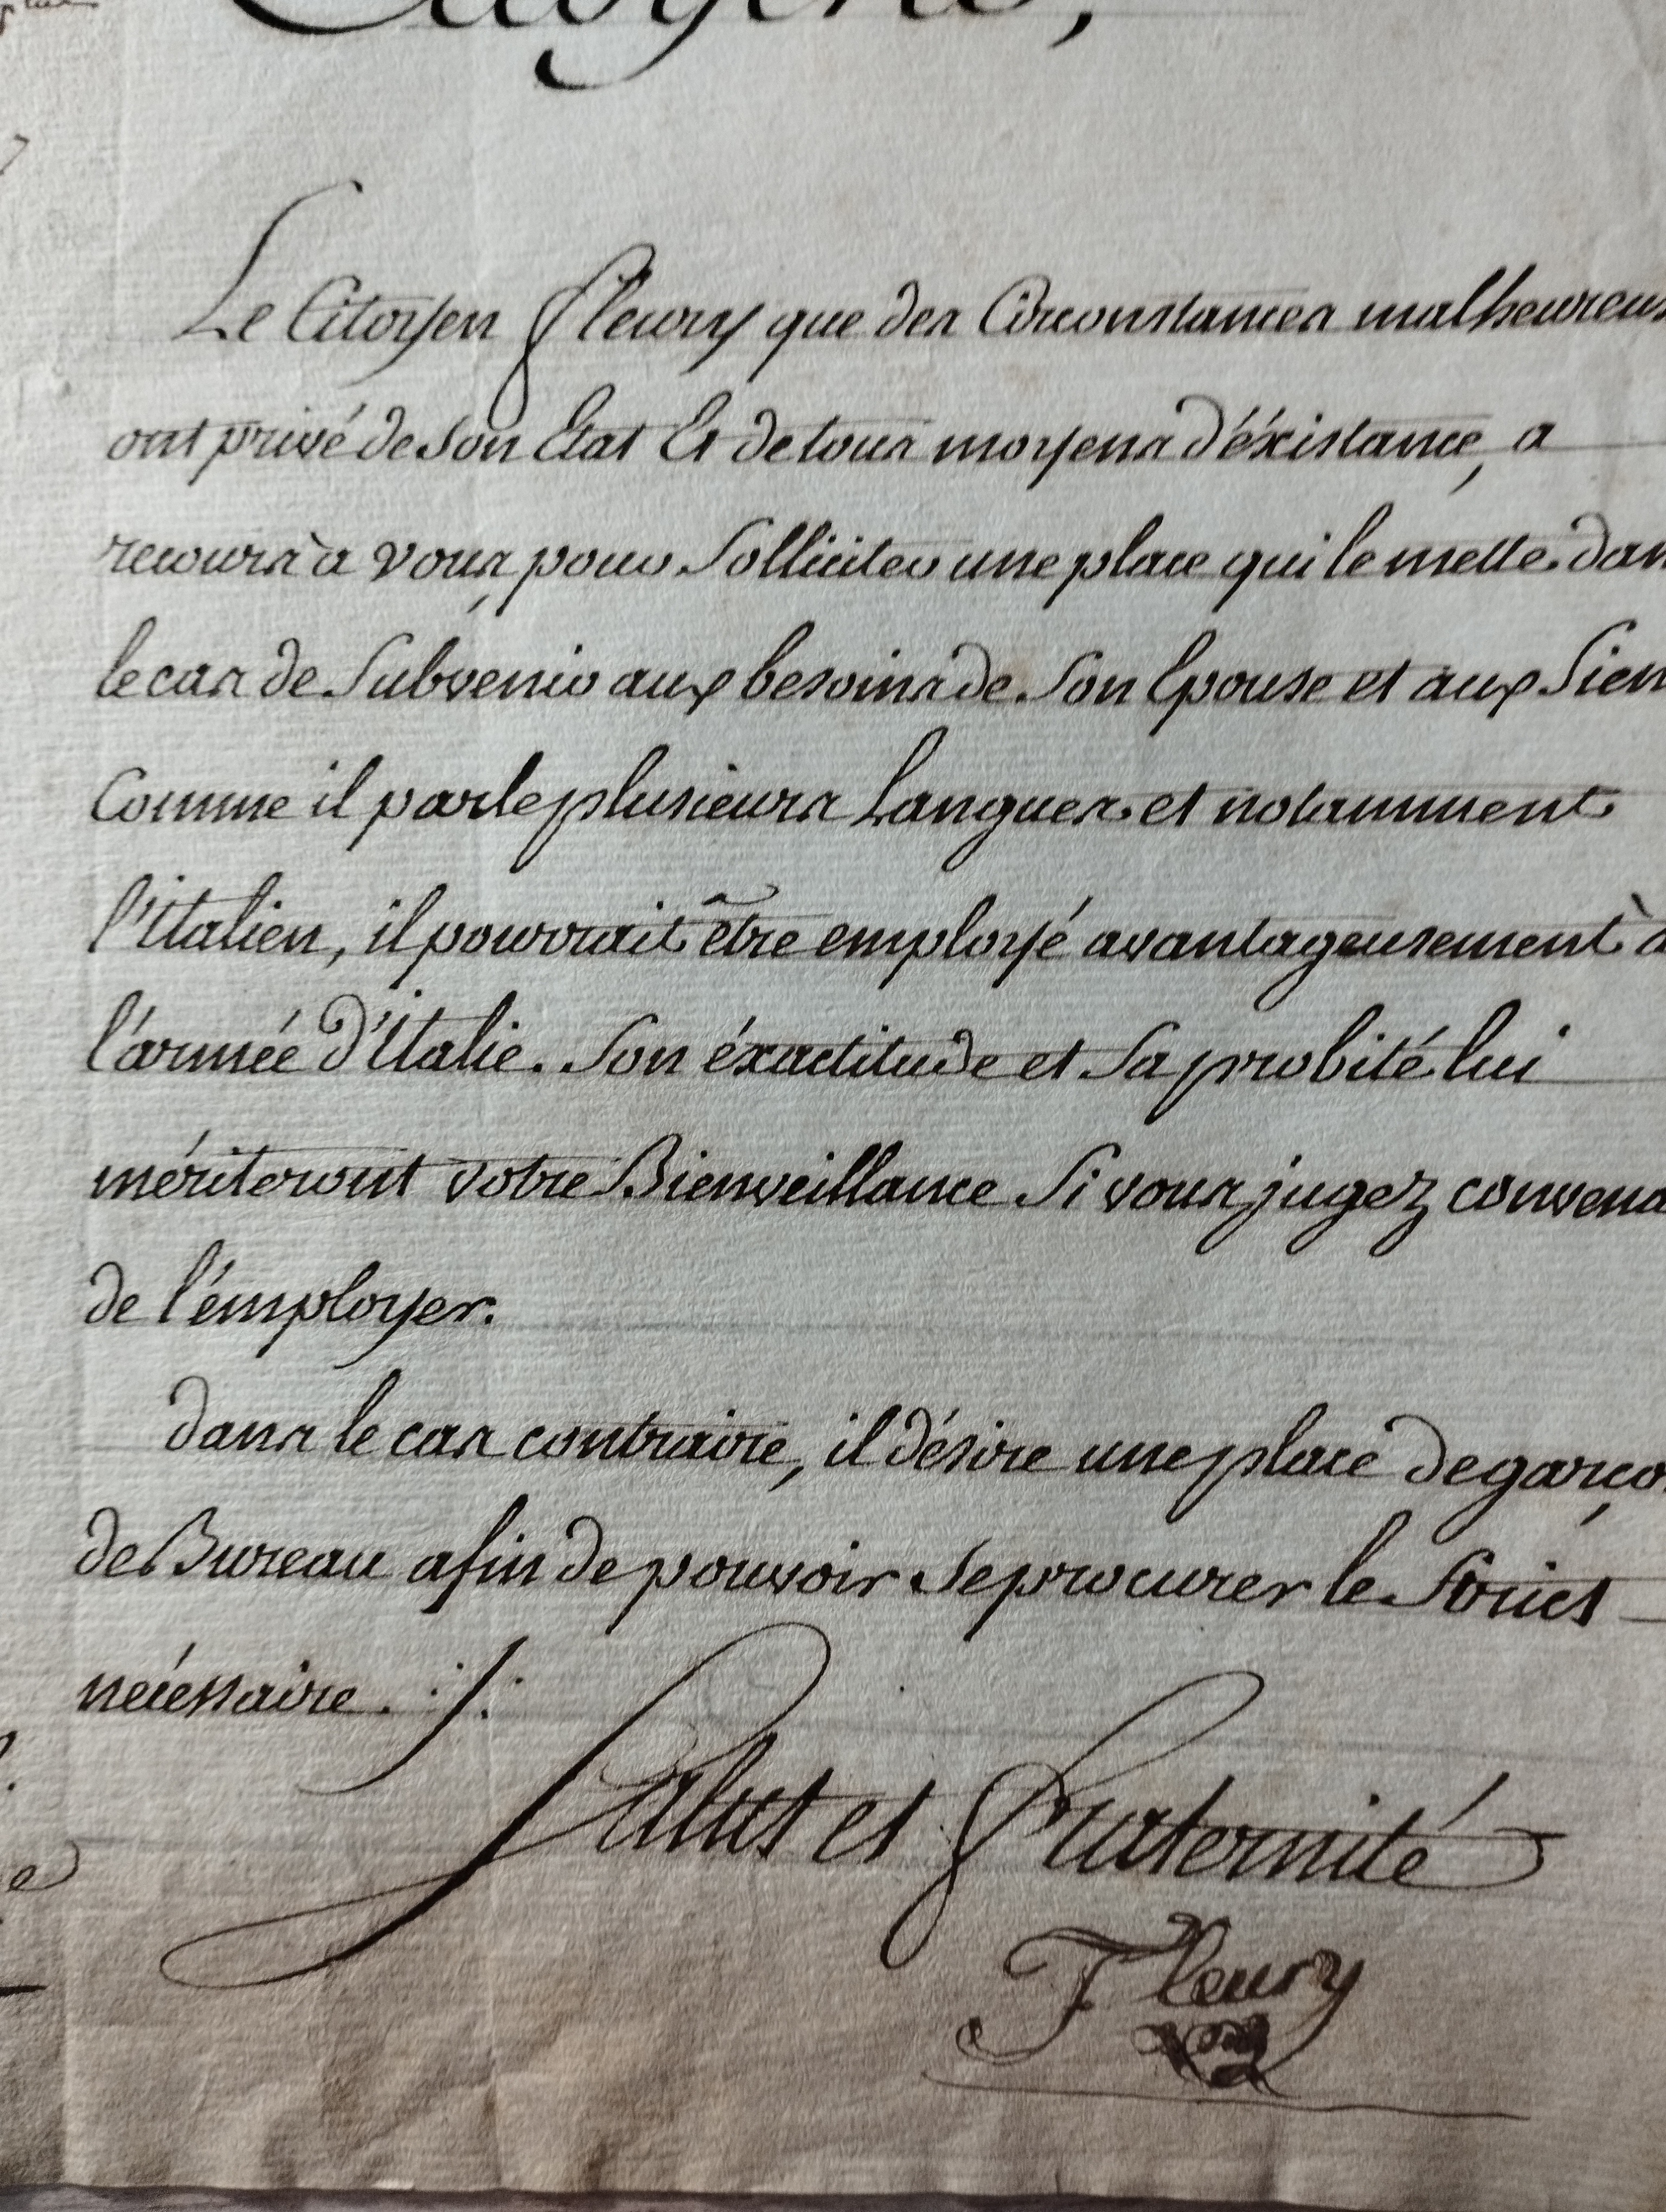 Citoyens,
Le Citoyen Fleury que des Circonstances malheureus
ont privé de son Etat Et de tous moyens d'éxistance, a
recours à vous, pour Solliciter une place qui le mette dan
le cas de Subvenir aux besoins de Son Epouse et aux Sien
Comme il parle plusieurs Langues et notamment
l'Italien, il pourrait être employé avantageusement à
l'armée d'Italie. Son éxactitude et Sa probité lui
mériteront votre Bienveillance Si vous jugez convena
de l'émployer.
dans le cas contraire, il désire une place de garço
de Bureau afin de pouvoir Se procurer le Strict
nécéssaire. :/:
Salut et Fraternité
Fleury